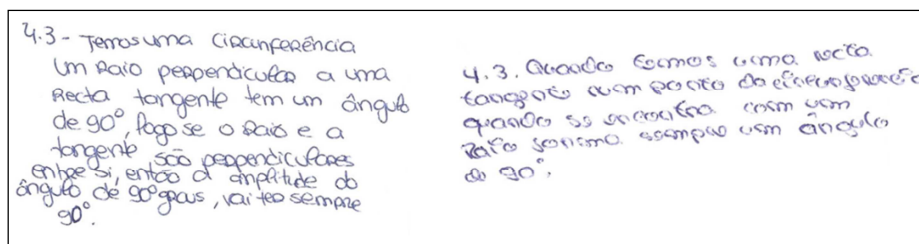 4.3 - Temos uma circunferência
Um raio perpendicular a uma
recta tangente tem um ângulo
de 90°, logo se o raio e a
tangente são perpendiculares
entre si, então a amplitude do
ângulo de 90° graus, vai ter sempre
90°.
4.3. Quando temos uma recta
tangente num ponto da circunferência
quando se encontra com um
raio forma sempre um ângulo
de 90°.